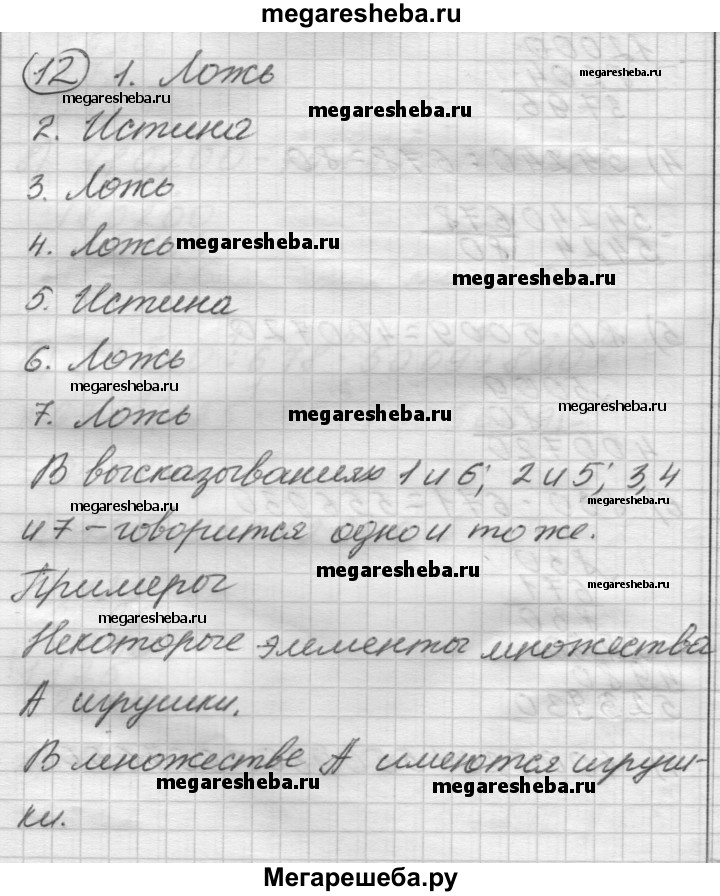 megaresheba.ru
12 1. Ложь
megaresheba.ru
megaresheba.ru
megaresheba.ru
2. Истина
3. Ложь
4. Ложь megaresheba.ru
megaresheba.ru
5. Истина
6. Ложь
megaresheba.ru
7. Ложь megaresheba.ru megaresheba.ru
В высказываниях 1 и 6; 2 и 5; 3, 4
megaresheba.ru megaresheba.ru
и 7 – говорится одно и тоже.
megaresheba.ru
Примеры megaresheba.ru
megaresheba.ru
Некоторые элементы множества
А игрушки.
В множестве А имеются игруш-
megaresheba.ru megaresheba.ru
ки.
Мегарешеба.ру